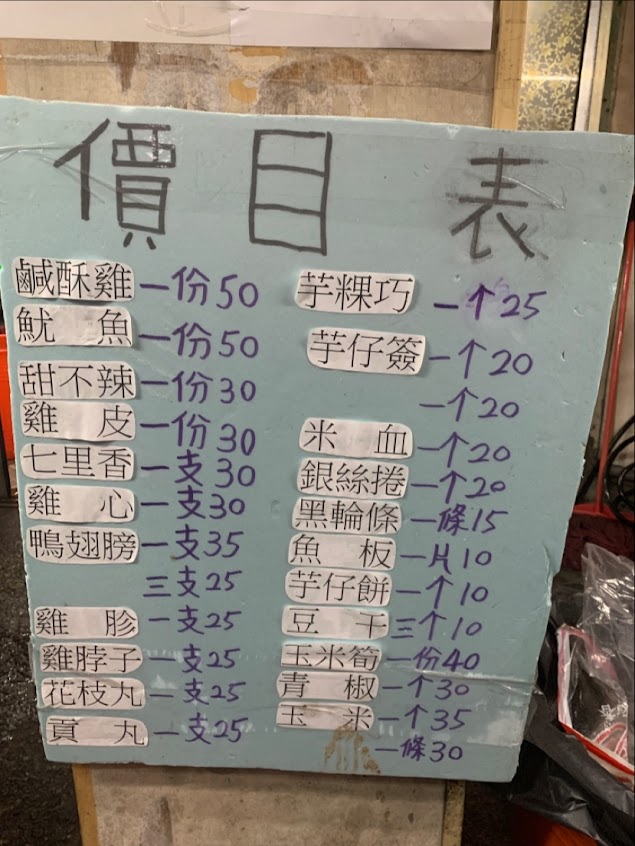 價目表
鹹酥雞 一份50
魷魚 一份50
甜不辣 一份30
雞皮 一份30
七里香 一支30
雞心 一支30
鴨翅膀 一支35
三支25
雞胗 一支25
雞脖子 一支25
花枝丸 一支25
貢丸 一支25
芋粿巧 一个25
芋仔簽 一个20
一个20
米血 一个20
銀絲捲 一个20
黑輪條 一條15
魚板 一片10
芋仔餅 一个10
豆干 三个10
玉米筍 一份40
青椒 一个30
玉米 一个35
一條30